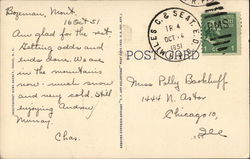 Bozeman, Mont.
16 Oct 51
Am glad for the rest.
Getting odds and
ends done. We are
in the mountains
now - much snow
and very cold. Still
enjoying Andrew
Murray.
Chas.
MILES C. & SEAT.
TR 4
OCT
1951
RMS
POST CARD
Miss Polly
1444 N. Astor
Chicago 10,
Ill